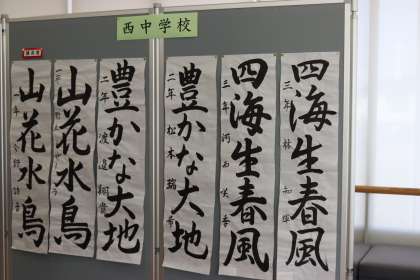 西中学校
四海生春風
三年 林
四海生春風
三年 河
豊かな大地
二年 松本
豊かな大地
二年 渡邉
山花水鳥
山花水鳥